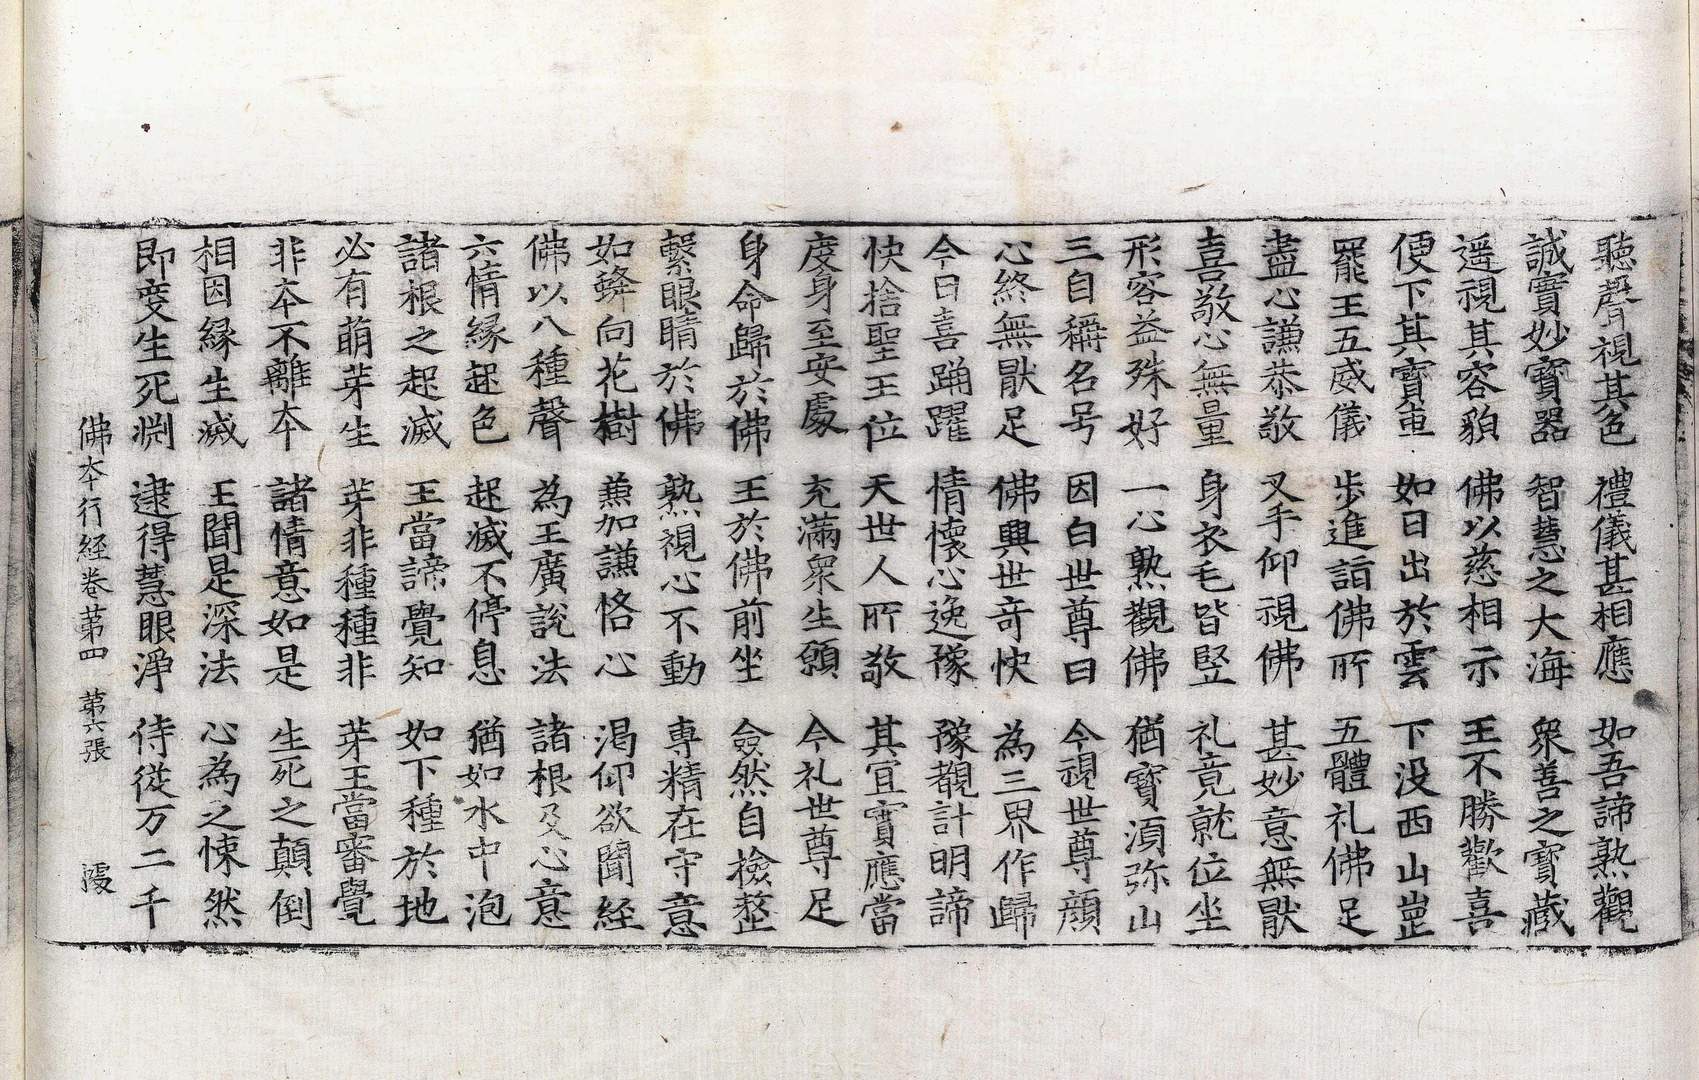 聽聲視其色　禮儀甚相應　如吾諦熟觀
誠實妙寶器　智慧之大海　衆善之寶藏
遥視其容貌　佛以慈相示　王不勝歡喜
便下其寶車　如日出於雲　下没西山崗
罷王五威儀　步進詣佛所　五體礼佛足
盡心謙恭敬　叉手仰視佛　甚妙意無猒
喜敬心無量　身衣毛皆竪　礼竟就位坐
形容益殊好　一心熟觀佛　猶寶湏弥山
三自稱名号　因白世尊曰　今視世尊顔
心終無猒足　佛興世竒快　為三界作歸
今日喜踊躍　情懷心逸豫　豫覩計明諦
快捨聖王位　天世人所敬　其宜實應當
度身至安處　充滿衆生願　今礼世尊足
身命歸於佛　王於佛前坐　僉然自撿整
繫眼睛於佛　熟視心不動　専精在守意
如蜂向花樹　兼加謙恪心　渴仰欲聞経
佛以八種聲　為王廣說法　諸根及心意
六情縁起色　起滅不停息　猶如水中泡
諸根之起滅　王當諦覺知　如下種於地
必有萌芽生　芽非種種非　芽王當審覺
非夲不離夲　諸情意如是　生死之顛倒
相因縁生滅　王聞是深法　心為之悚然
即變生死渕　逮得慧眼淨　侍從万二千
佛夲行経卷苐四　苐六張